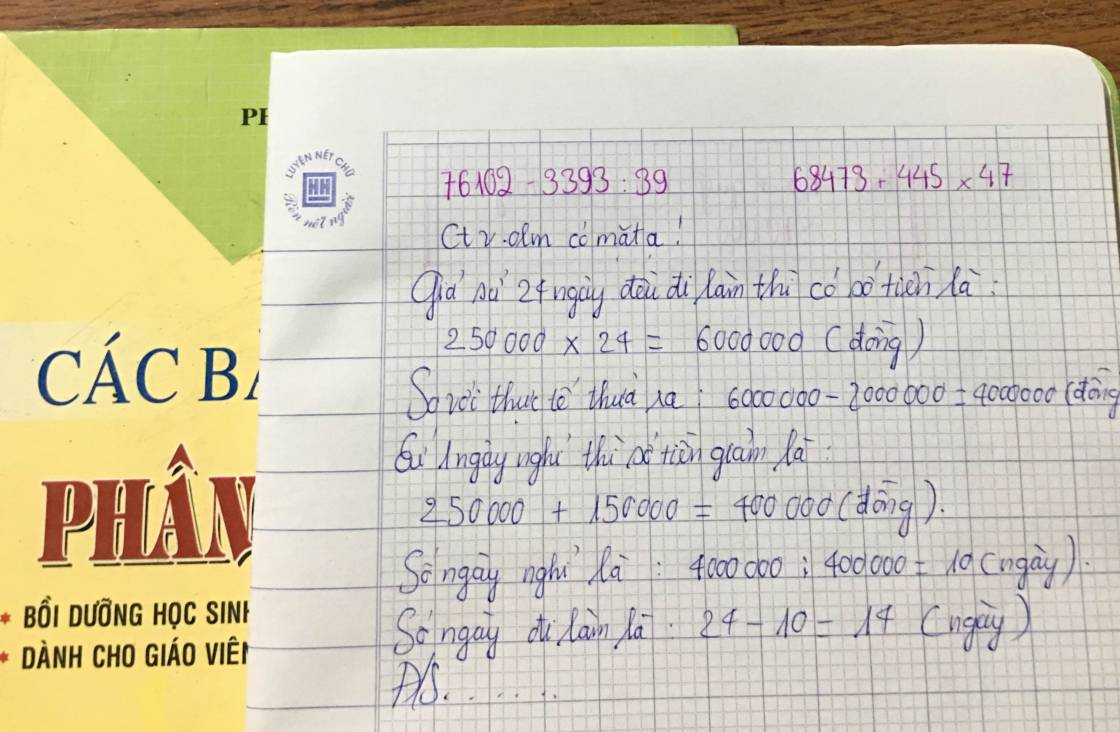 PH
CÁC B
PHÂN
* BỒI DƯỠNG HỌC SINH
* DÀNH CHO GIÁO VIÊN
LUYỆN NÉT CHỮ
HH
Rèn nết người
76102 - 3393 : 39
68473 + 445 x 47
Ctv.olm có mặt ạ!
Giả sử 24 ngày đều đi làm thì có số tiền là :
250 000 x 24 = 6000 000 (đồng)
So với thực tế thừa ra : 6000 000 - 2000 000 = 4000000 (đồng
Cứ 1 ngày nghỉ thì số tiền giảm là :
250 000 + 150 000 = 400 000 (đồng).
Số ngày nghỉ là : 4000 000 : 400 000 = 10 (ngày).
Số ngày đi làm là : 24 - 10 = 14 (ngày)
Đ/S.......